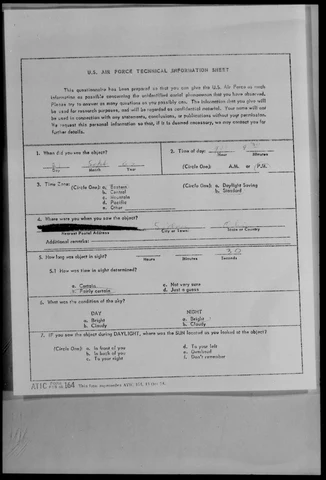 U.S. AIR FORCE TECHNICAL INFORMATION SHEET
This questionnaire has been prepared so that you can give the U.S. Air Force as much
information as possible concerning the unidentified aerial phenomenon that you have observed.
Please try to answer as many questions as you possibly can. The information that you give will
be used for research purposes, and will be regarded as confidential material. Your name will not
be used in connection with any statements, conclusions, or publications without your permission.
We request this personal information so that, if it is deemed necessary, we may contact you for
further details.
1. When did you see the object?
Day Month Year
2. Time of day:
Hour Minutes
(Circle One): A.M. or P.M.
3. Time Zone:
(Circle One): a. Eastern
b. Central
c. Mountain
d. Pacific
e. Other
(Circle One): a. Daylight Saving
b. Standard
4. Where were you when you saw the object?
Nearest Postal Address City or Town State or Country
Additional remarks:
5. How long was object in sight?
30
Hours Minutes Seconds
5.1 How was time in sight determined?
a. Certain
b. Fairly certain
c. Not very sure
d. Just a guess
6. What was the condition of the sky?
DAY
a. Bright
b. Cloudy
NIGHT
a. Bright
b. Cloudy
7. If you saw the object during DAYLIGHT, where was the SUN located as you looked at the object?
(Circle One): a. In front of you
b. In back of you
c. To your right
d. To your left
e. Overhead
f. Don't remember
ATIC FORM 164 This form supersedes ATIC 164,